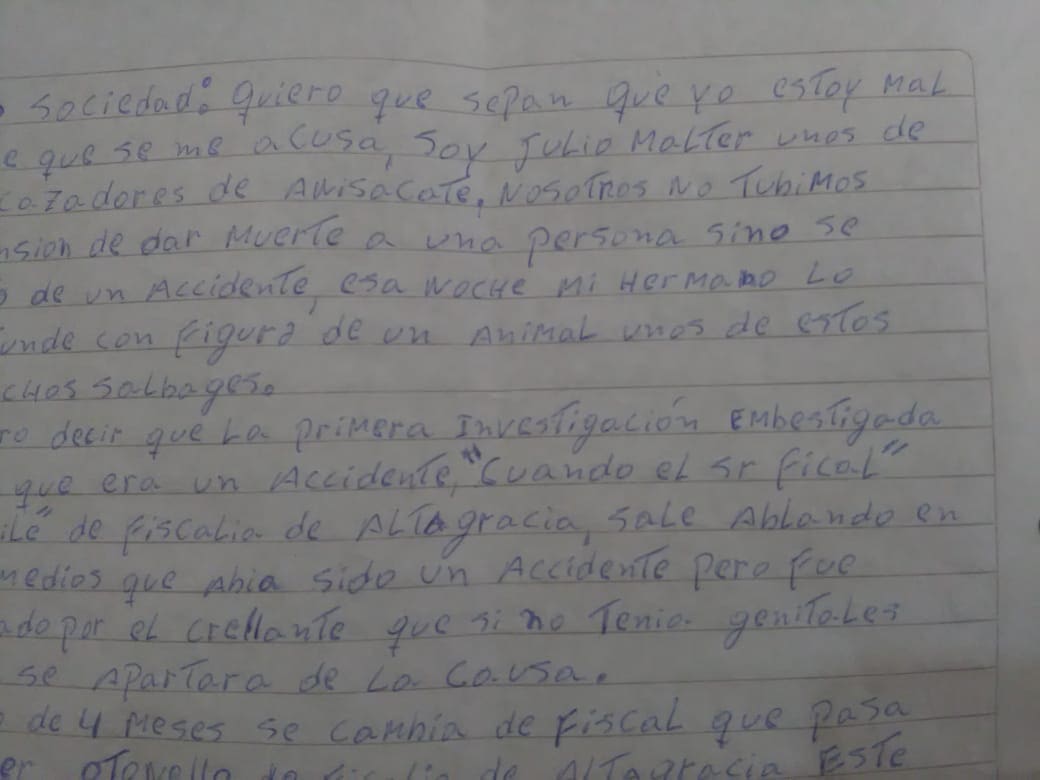 o Sociedad: Quiero que sepan que yo estoy mal
e que se me acusa, Soy Julio Malter unos de
cazadores de Anisacate, Nosotros no tubimos
nsion de dar muerte a una persona sino se
o de un Accidente, esa noche mi Hermano Lo
unde con figura de un Animal unos de estos
chos Salbages.
ro decir que La primera Investigación Embestigada
que era un Accidente, "Cuando el sr fical"
ile" de fiscalia de Altagracia, sale Ablando en
medios que Abia sido un Accidente pero fue
ado por el crellante que si no Tenia genitales
se Apartara de La Causa.
o de 4 meses se cambia de fiscal que pasa
er de fiscalia de Altagracia Este